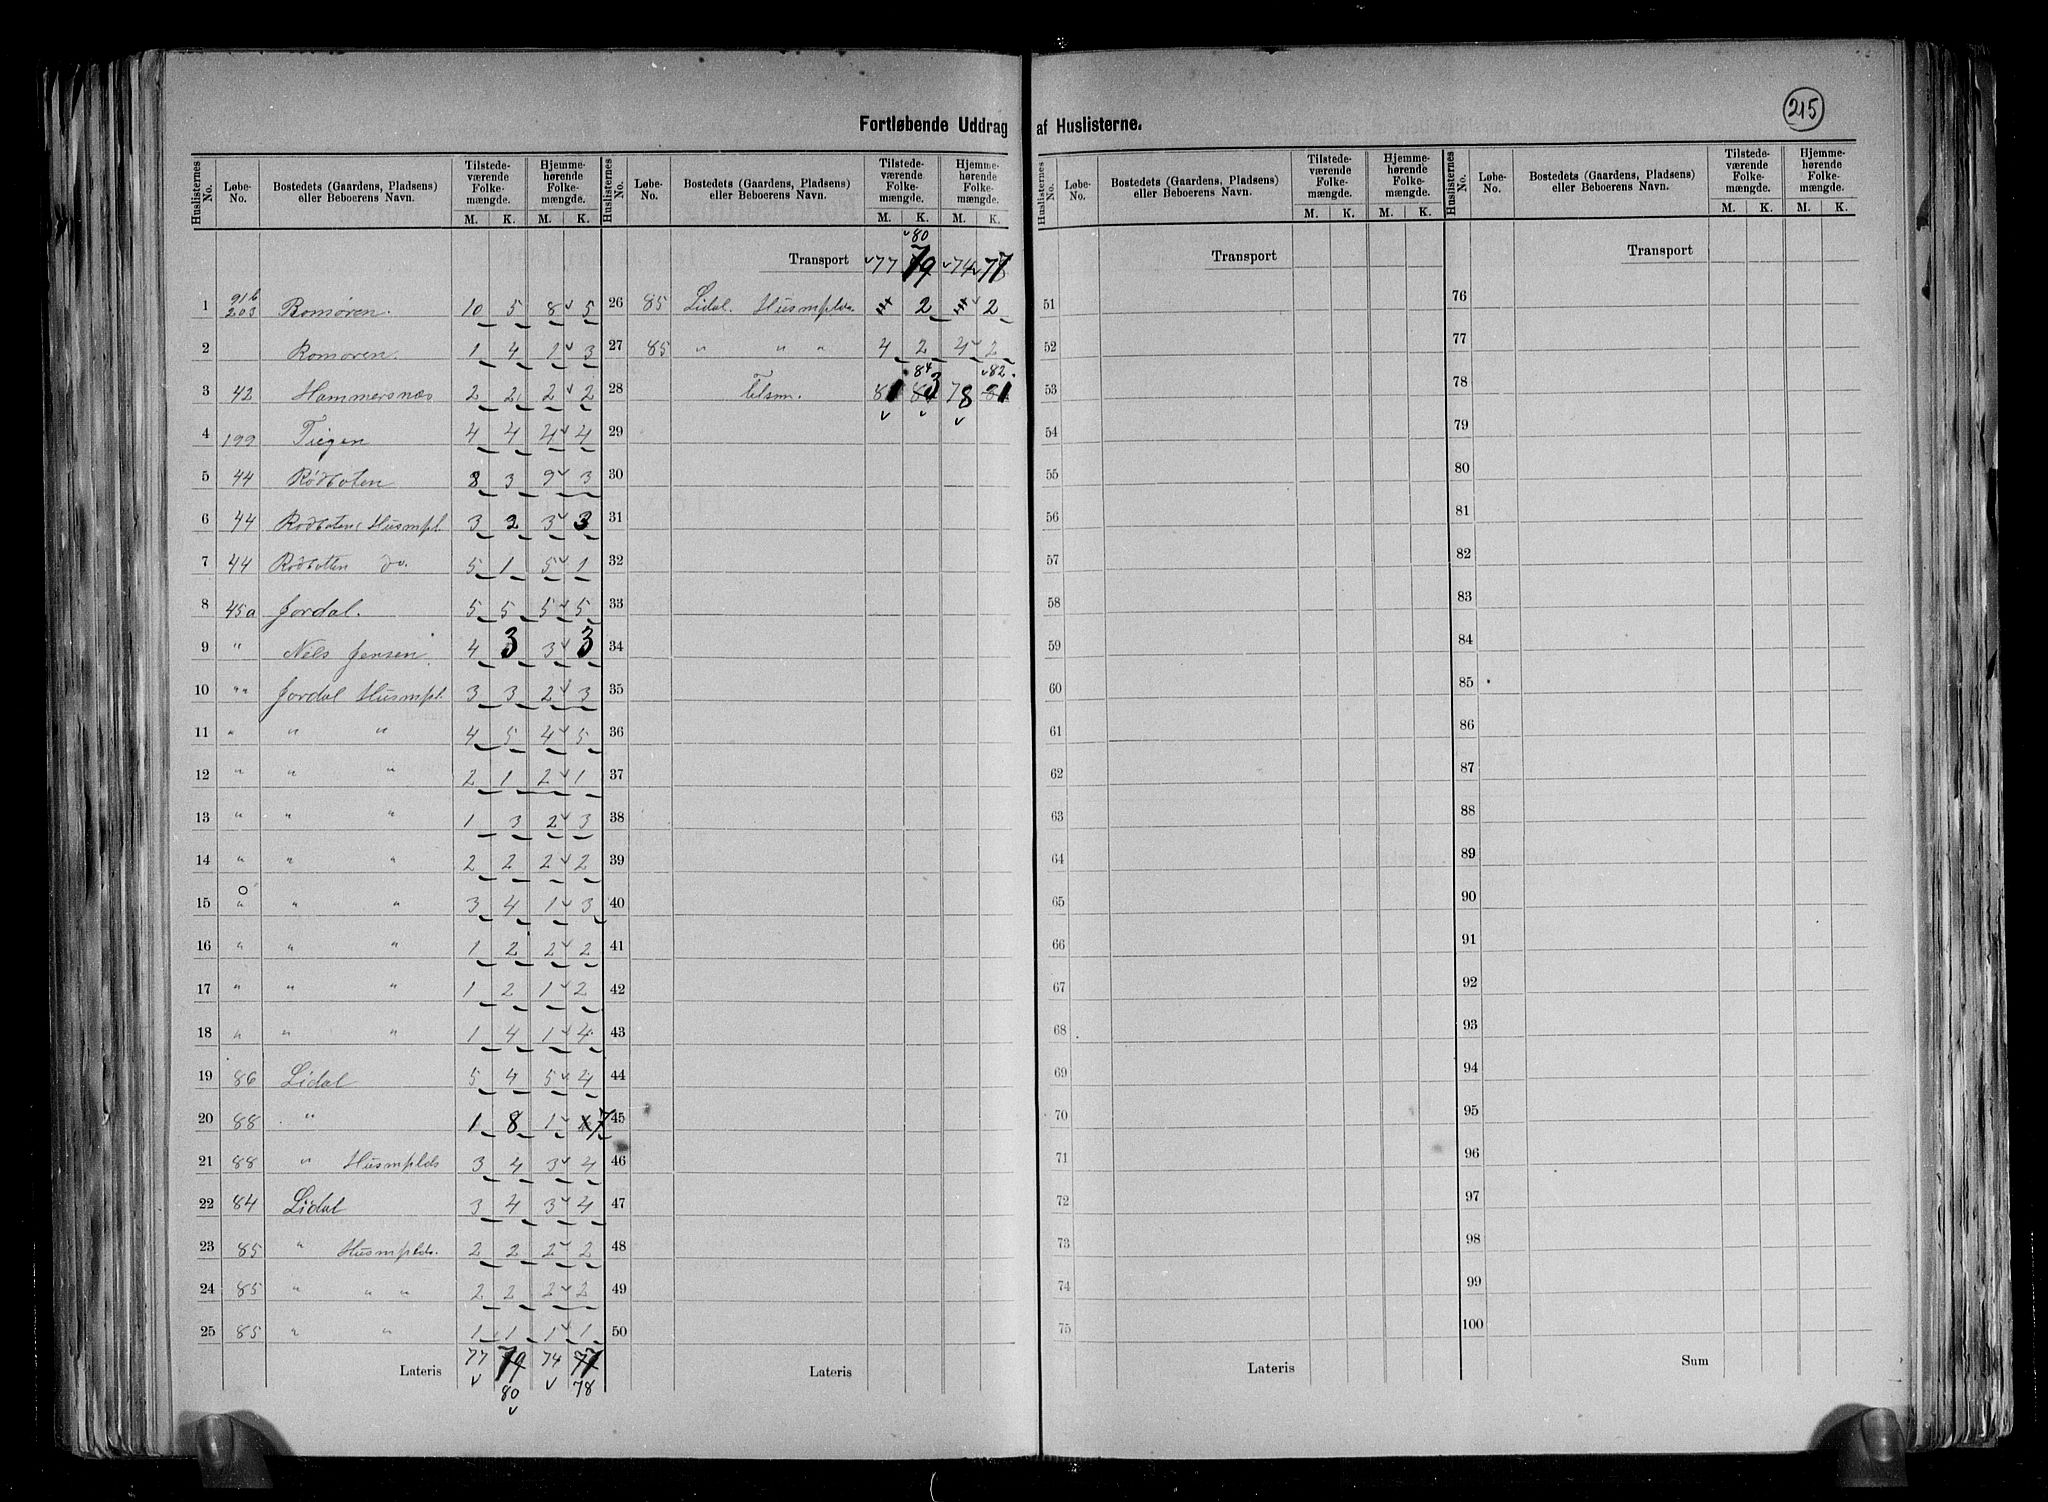 215
Fortløbende Uddrag af Huslisterne.
Huslisternes No. Løbe-No. Bostedets (Gaardens, Pladsens) eller Beboerens Navn. Tilstedeværende Folkemængde. M. K. Hjemmehørende Folkemængde. M. K.
1 91b 203 Romören. 10 5 8 5
2 Romören. 1 4 1 3
3 42 Hammersnæs 2 2 2 2
4 199 Tiegen 4 4 4 4
5 44 Rödboten 8 3 9 3
6 44 Rödboten Husmpl. 3 2 3 3
7 44 Rödbotten do. 5 1 5 1
8 45a Jordal. 5 5 5 5
9 " Nels Jensen 4 3 3 3
10 " Jordal Husmpl. 3 3 2 3
11 " " " 4 5 4 5
12 " " " 2 1 2 1
13 " " " 1 3 2 3
14 " " " 2 2 2 2
15 " " " 3 4 1 3
16 " " " 1 2 2 2
17 " " " 1 2 1 2
18 " " " 1 4 1 4
19 86 Lidal 5 4 5 4
20 88 " 1 8 1 7
21 88 " Husmplds 3 4 3 4
22 84 Lidal 3 4 3 4
23 85 " Husmplds. 2 2 2 2
24 85 " " " 2 2 2 2
25 85 " " 1 1 1 1
Lateris 77 79 74 77
80 78
Huslisternes No. Løbe-No. Bostedets (Gaardens, Pladsens) eller Beboerens Navn. Tilstedeværende Folkemængde. M. K. Hjemmehørende Folkemængde. M. K.
80
Transport 77 79 74 77
26 85 Lidal. Husmplds. 2 2
27 85 " " " 4 2 4 2
84 82
28 Tilsm. 81 83 78 81
29
30
31
32
33
34
35
36
37
38
39
40
41
42
43
44
45
46
47
48
49
50
Lateris
Huslisternes No. Løbe-No. Bostedets (Gaardens, Pladsens) eller Beboerens Navn. Tilstedeværende Folkemængde. M. K. Hjemmehørende Folkemængde. M. K.
Transport
51
52
53
54
55
56
57
58
59
60
61
62
63
64
65
66
67
68
69
70
71
72
73
74
75
Lateris
Huslisternes No. Løbe-No. Bostedets (Gaardens, Pladsens) eller Beboerens Navn. Tilstedeværende Folkemængde. M. K. Hjemmehørende Folkemængde. M. K.
Transport
76
77
78
79
80
81
82
83
84
85
86
87
88
89
90
91
92
93
94
95
96
97
98
99
100
Sum